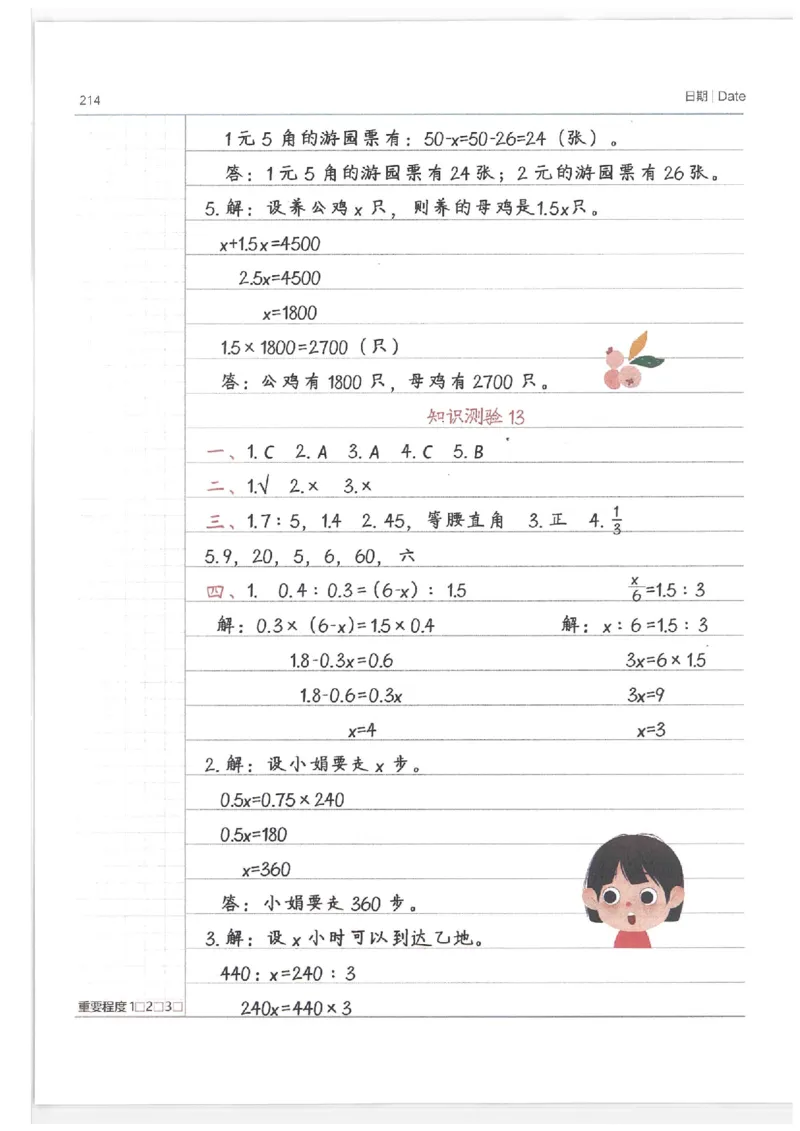 214
日期 | Date
1元5角的游园票有：50-x=50-26=24（张）。
答：1元5角的游园票有24张；2元的游园票有26张。
5.解：设养公鸡x只，则养的母鸡是1.5x只。
x+1.5x=4500
2.5x=4500
x=1800
1.5×1800=2700（只）
答：公鸡有1800只，母鸡有2700只。
知识测验13
一、1.C 2.A 3.A 4.C 5.B
二、1.√ 2.× 3.×
三、1.7：5，1.4 2.45，等腰直角 3.正 4.1/3
5.9，20，5，6，60，六
四、1. 0.4：0.3=(6-x)：1.5 x/6=1.5：3
解：0.3×(6-x)=1.5×0.4 解：x：6=1.5：3
1.8-0.3x=0.6 3x=6×1.5
1.8-0.6=0.3x 3x=9
x=4 x=3
2.解：设小娟要走x步。
0.5x=0.75×240
0.5x=180
x=360
答：小娟要走360步。
3.解：设x小时可以到达乙地。
440：x=240：3
重要程度1□2□3□
240x=440×3